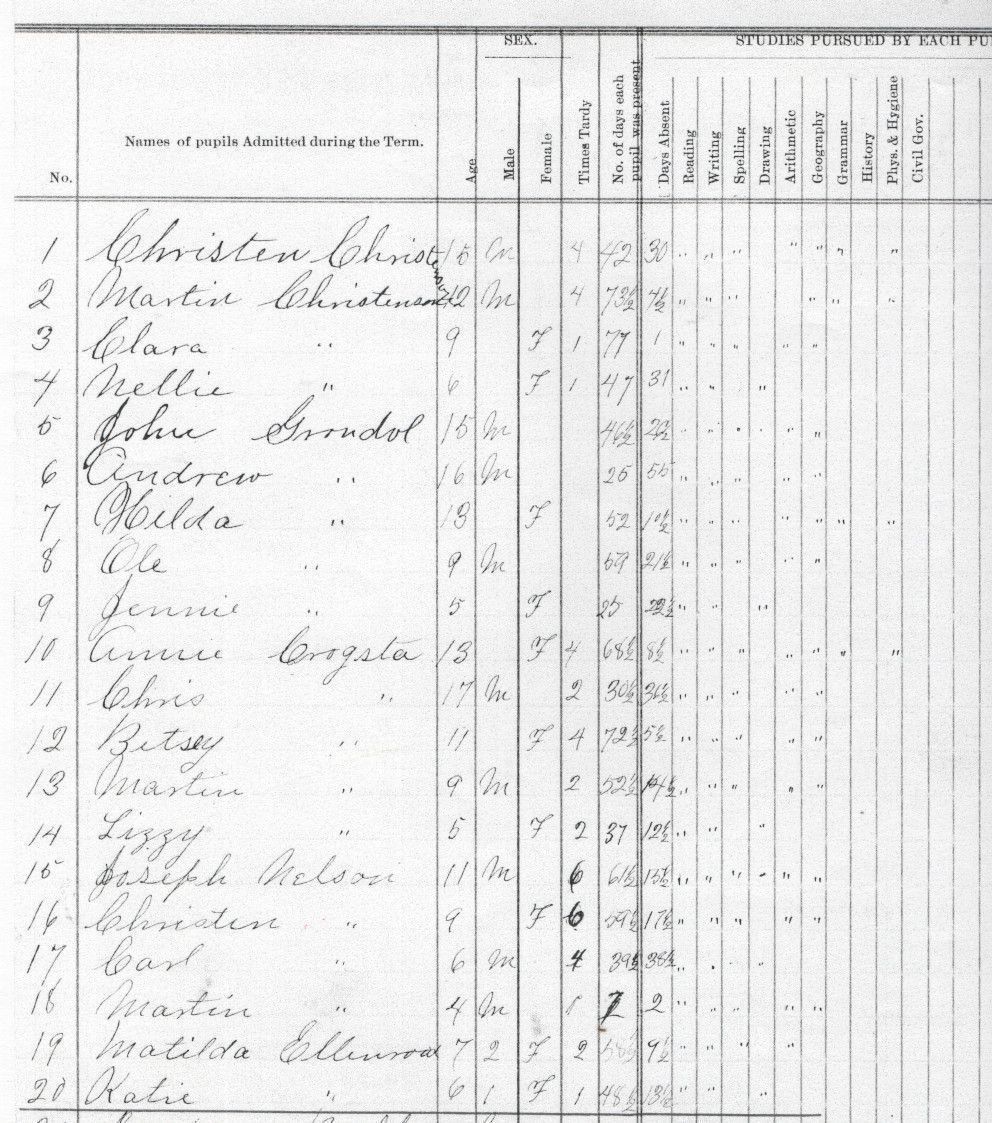 SEX. STUDIES PURSUED BY EACH PU
No. Names of pupils Admitted during the Term. Age Male Female Times Tardy No. of days each pupil was present Days Absent Reading Writing Spelling Drawing Arithmetic Geography Grammar History Phys. & Hygiene Civil Gov.
1 Christen Christenson 15 M 4 42 30 " " " " " " "
2 Martin Christenson 12 M 4 73½ 4½ " " " " " "
3 Clara " 9 F 1 77 1 " " " " "
4 Nellie " 6 F 1 47 31 " " "
5 John Grondol 15 M 46½ " " " " " "
6 Andrew " 16 M 25 55 " " " " "
7 Hilda " 13 F 52 10½ " " " " " " "
8 Ole " 9 M 59 21½ " " " " "
9 Jennie " 5 F 25 " " "
10 Annie Crogsta 13 F 4 68½ 8½ " " " " " " "
11 Chris " 17 M 2 30½ 36½ " " " " "
12 Betsey " 11 F 4 72½ 5½ " " " " "
13 Martin " 9 M 2 52½ 14½ " " " " "
14 Lizzy " 5 F 2 37 12½ " " "
15 Joseph Nelson 11 M 6 61½ 15½ " " " " " "
16 Christen " 9 F 6 59½ 17½ " " " " "
17 Carl " 6 M 4 39½ 38½ " " " "
18 Martin " 4 M 1 2 " " " " "
19 Matilda Ellenrood 7 2 F 2 58½ 9½ " " " "
20 Katie " 6 1 F 1 48½ 13½ " " "